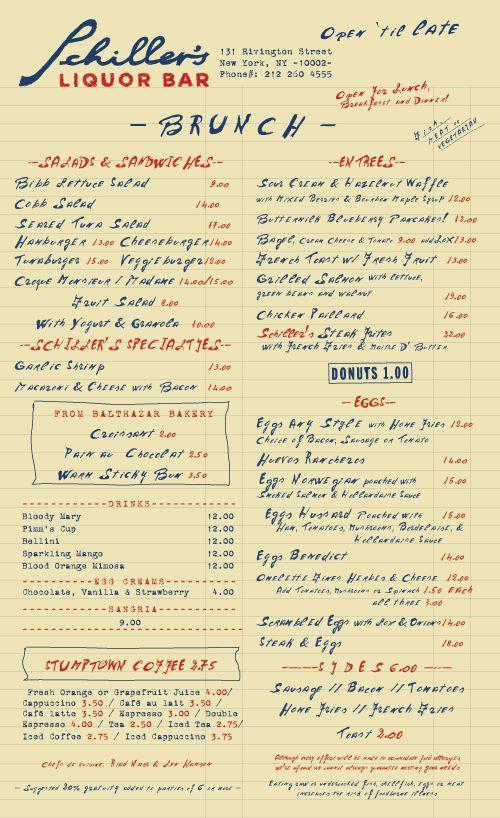 Schiller's
LIQUOR BAR
131 Rivington Street
New York, NY -10002-
Phone#: 212 260 4555
OPEN 'til LATE
OPEN FOR LUNCH,
Breakfast and Dinner!
Fish
MEAT or
VEGETARIAN
- BRUNCH -
--SALADS & SANDWICHES--
Bibb Lettuce Salad 9.00
Cobb Salad 14.00
Seared Tuna Salad 17.00
Hamburger 13.00 Cheeseburger 14.00
Tunaburger 15.00 Veggieburger 12.00
Croque Monsieur / Madame 14.00/15.00
Fruit Salad 8.00
With Yogurt & Granola 10.00
--SCHILLER'S SPECIALTIES--
Garlic Shrimp 13.00
Macaroni & Cheese with Bacon 14.00
FROM BALTHAZAR BAKERY
Croissant 2.00
Pain au Chocolat 2.50
Warm Sticky Bun 3.50
DRINKS
Bloody Mary 12.00
Pimm's Cup 12.00
Bellini 12.00
Sparkling Mango 12.00
Blood Orange Mimosa 12.00
EGG CREAMS
Chocolate, Vanilla & Strawberry 4.00
SANGRIA
9.00
STUMPTOWN COFFEE 2.75
Fresh Orange or Grapefruit Juice 4.00/
Cappuccino 3.50 / Café au lait 3.50 /
Café latte 3.50 / Espresso 3.00 / Double
Espresso 4.00 / Tea 2.50 / Iced Tea 2.75/
Iced Coffee 2.75 / Iced Cappuccino 3.75
Chefs de cuisine:
- Suggested 20% gratuity added to parties of 6 or more -
--ENTREES--
Sour Cream & Hazelnut Waffle
with Mixed Berries & Bourbon Maple Syrup 12.00
Buttermilk Blueberry Pancakes! 12.00
Bagel, Cream Cheese & Tomato 9.00 add LOX 13.00
French Toast w/ Fresh Fruit 13.00
Grilled Salmon with lettuce,
green beans and walnut 19.00
Chicken Paillard 16.00
Schiller's Steak Frites 22.00
with French Fries & Maitre D' Butter
DONUTS 1.00
--EGGS--
Eggs Any Style with Home Fries 12.00
Choice of Bacon, Sausage or Tomato
Huevos Rancheros 14.00
Eggs Norwegian poached with 15.00
Smoked Salmon & Hollandaise Sauce
Eggs Hussard Poached with 15.00
Ham, Tomatoes, Mushrooms, Bordelaise, &
Hollandaise Sauce
Eggs Benedict 14.00
Omelette Fines Herbes & Cheese 12.00
Add Tomatoes, Mushrooms or Spinach 1.50 EACH
all three 3.00
Scrambled Eggs with Lox & Onions 14.00
Steak & Eggs 18.00
SIDES 6.00
Sausage // Bacon // Tomatoes
Home Fries // French Fries
Toast 2.00
Although every effort will be made to accommodate food allergies,
we're afraid we cannot always guarantee meeting your needs
Eating raw or undercooked fish, shellfish, eggs or meat
increases the risk of foodborne illness